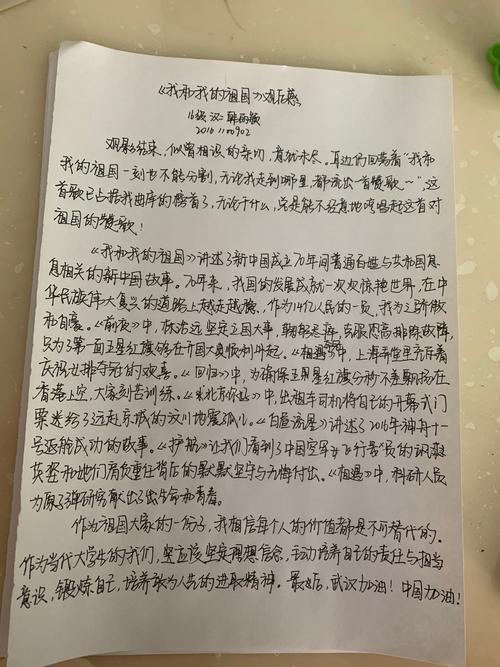 《我和我的祖国》观后感
16级 汉二
2016110902
观影结束，似曾相识的亲切，意犹未尽。耳边仍回荡着“我和
我的祖国一刻也不能分割，无论我走到哪里，都流出一首赞歌~”，这
首歌已占据我曲库的榜首了，无论干什么，总是能不经意地哼唱起这首对
祖国的赞歌！
《我和我的祖国》讲述了新中国成立70年间普通百姓与共和国息
息相关的新中国故事。70年来，我国的发展成就一次次惊艳世界，在中
华民族伟大复兴的道路上越走越稳，作为14亿人民的一员，我为之骄傲
和自豪。《前夜》中，林治远坚定立国大事，克服恐高排除故障，
只为了第一面五星红旗能够在开国大典顺利升起。《夺冠》中，上海弄堂里充斥着
庆祝女排夺冠的欢喜。《回归》中，为确保五星红旗分秒不差飘扬在
香港上空，大家刻苦训练。《北京你好》中，出租车司机将自己的开幕式门
票送给了远赴京城的汶川地震孤儿。《白昼流星》讲述了2016年神舟十一
号返航成功的故事。《护航》让我们看到了中国空军女飞行员的飒爽
英姿和她们肩负重任背后的默默坚守与无悔付出。《相遇》中，科研人员
为原子弹研究献出了生命和青春。
作为祖国大家的一份子，我相信每个人的价值都是不可替代的。
作为当代大学生的我们，更应该坚定理想信念，主动培养自己的责任与担当
意识，锻炼自己，培养敢为人先的进取精神。最后，武汉加油！中国加油！